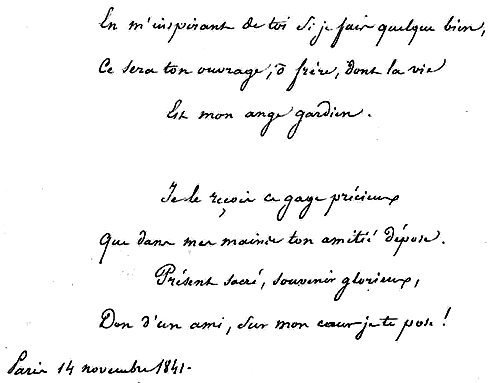 En m'inspirant de toi si je fais quelque bien,
Ce sera ton ouvrage, ô frère, dont la vie
Est mon ange gardien.
Je le reçois ce gage précieux
Que dans mes mains ton amitié dépose.
Présent sacré, souvenir glorieux,
Don d'un ami, sur mon cœur je te pose !
Paris 14 novembre 1841.